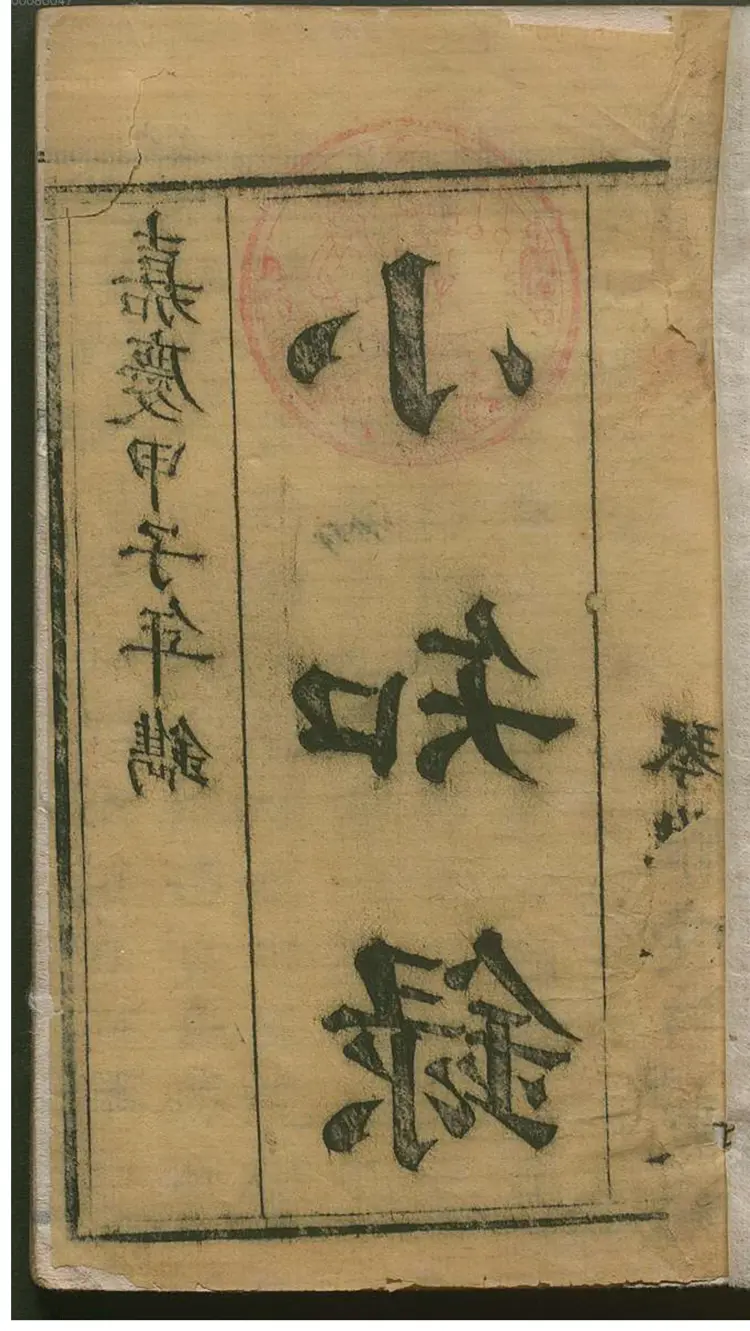 嘉慶甲子年鐫
小知錄